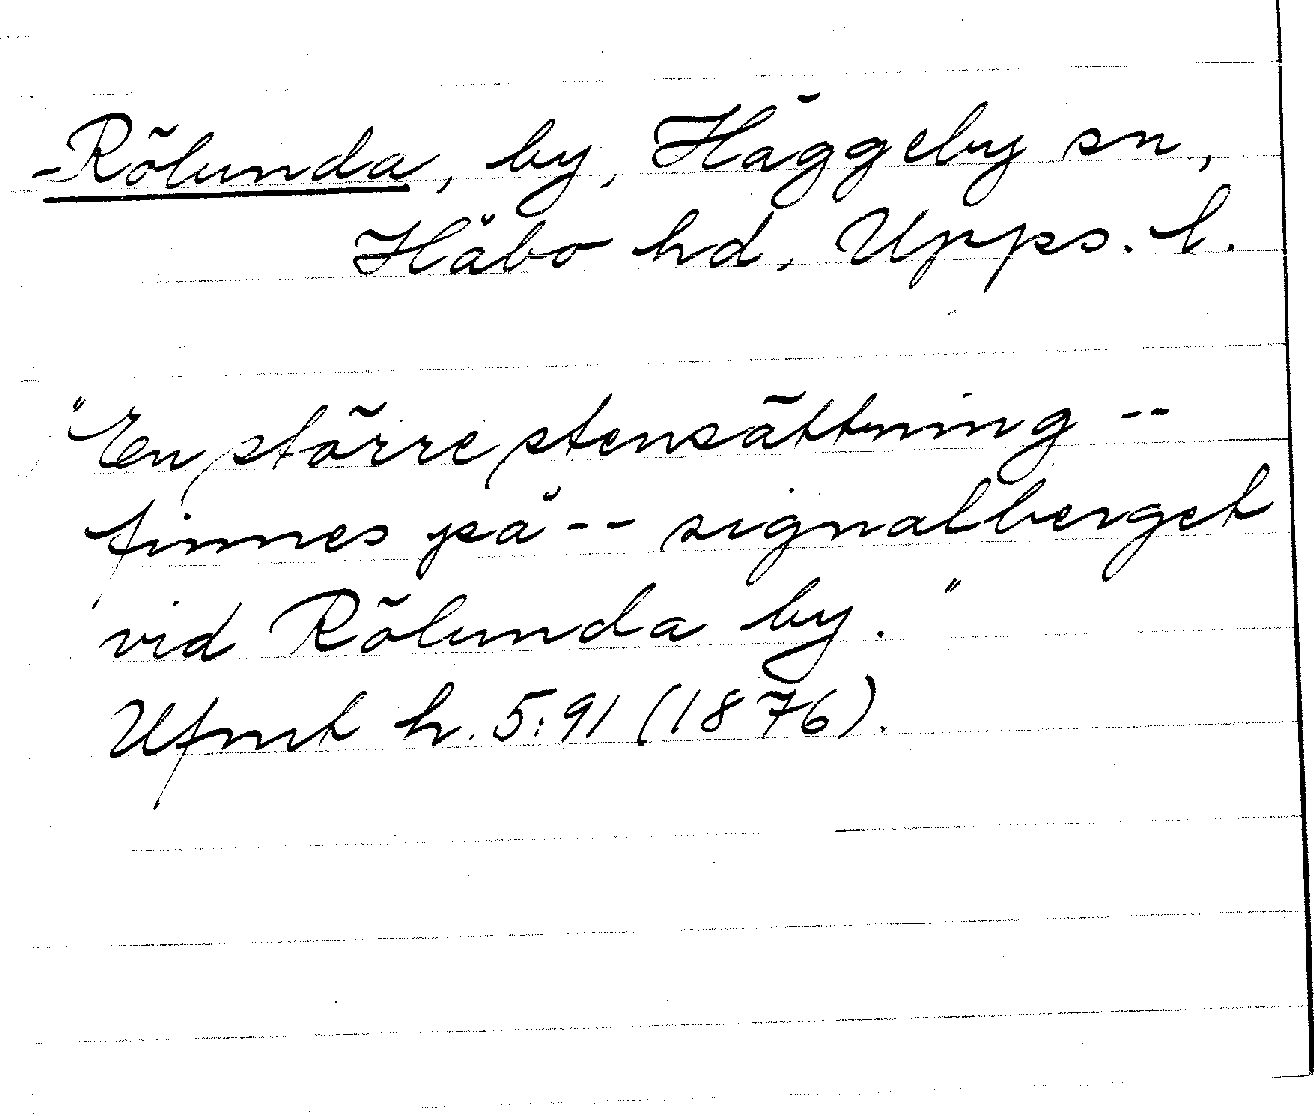 Rölunda, by, Häggeby sn,
Håbo hd, Upps. l.
"En större stensättning --
finnes på -- signalberget
vid Rölunda by."
Ufmt h. 5:91 (1876).